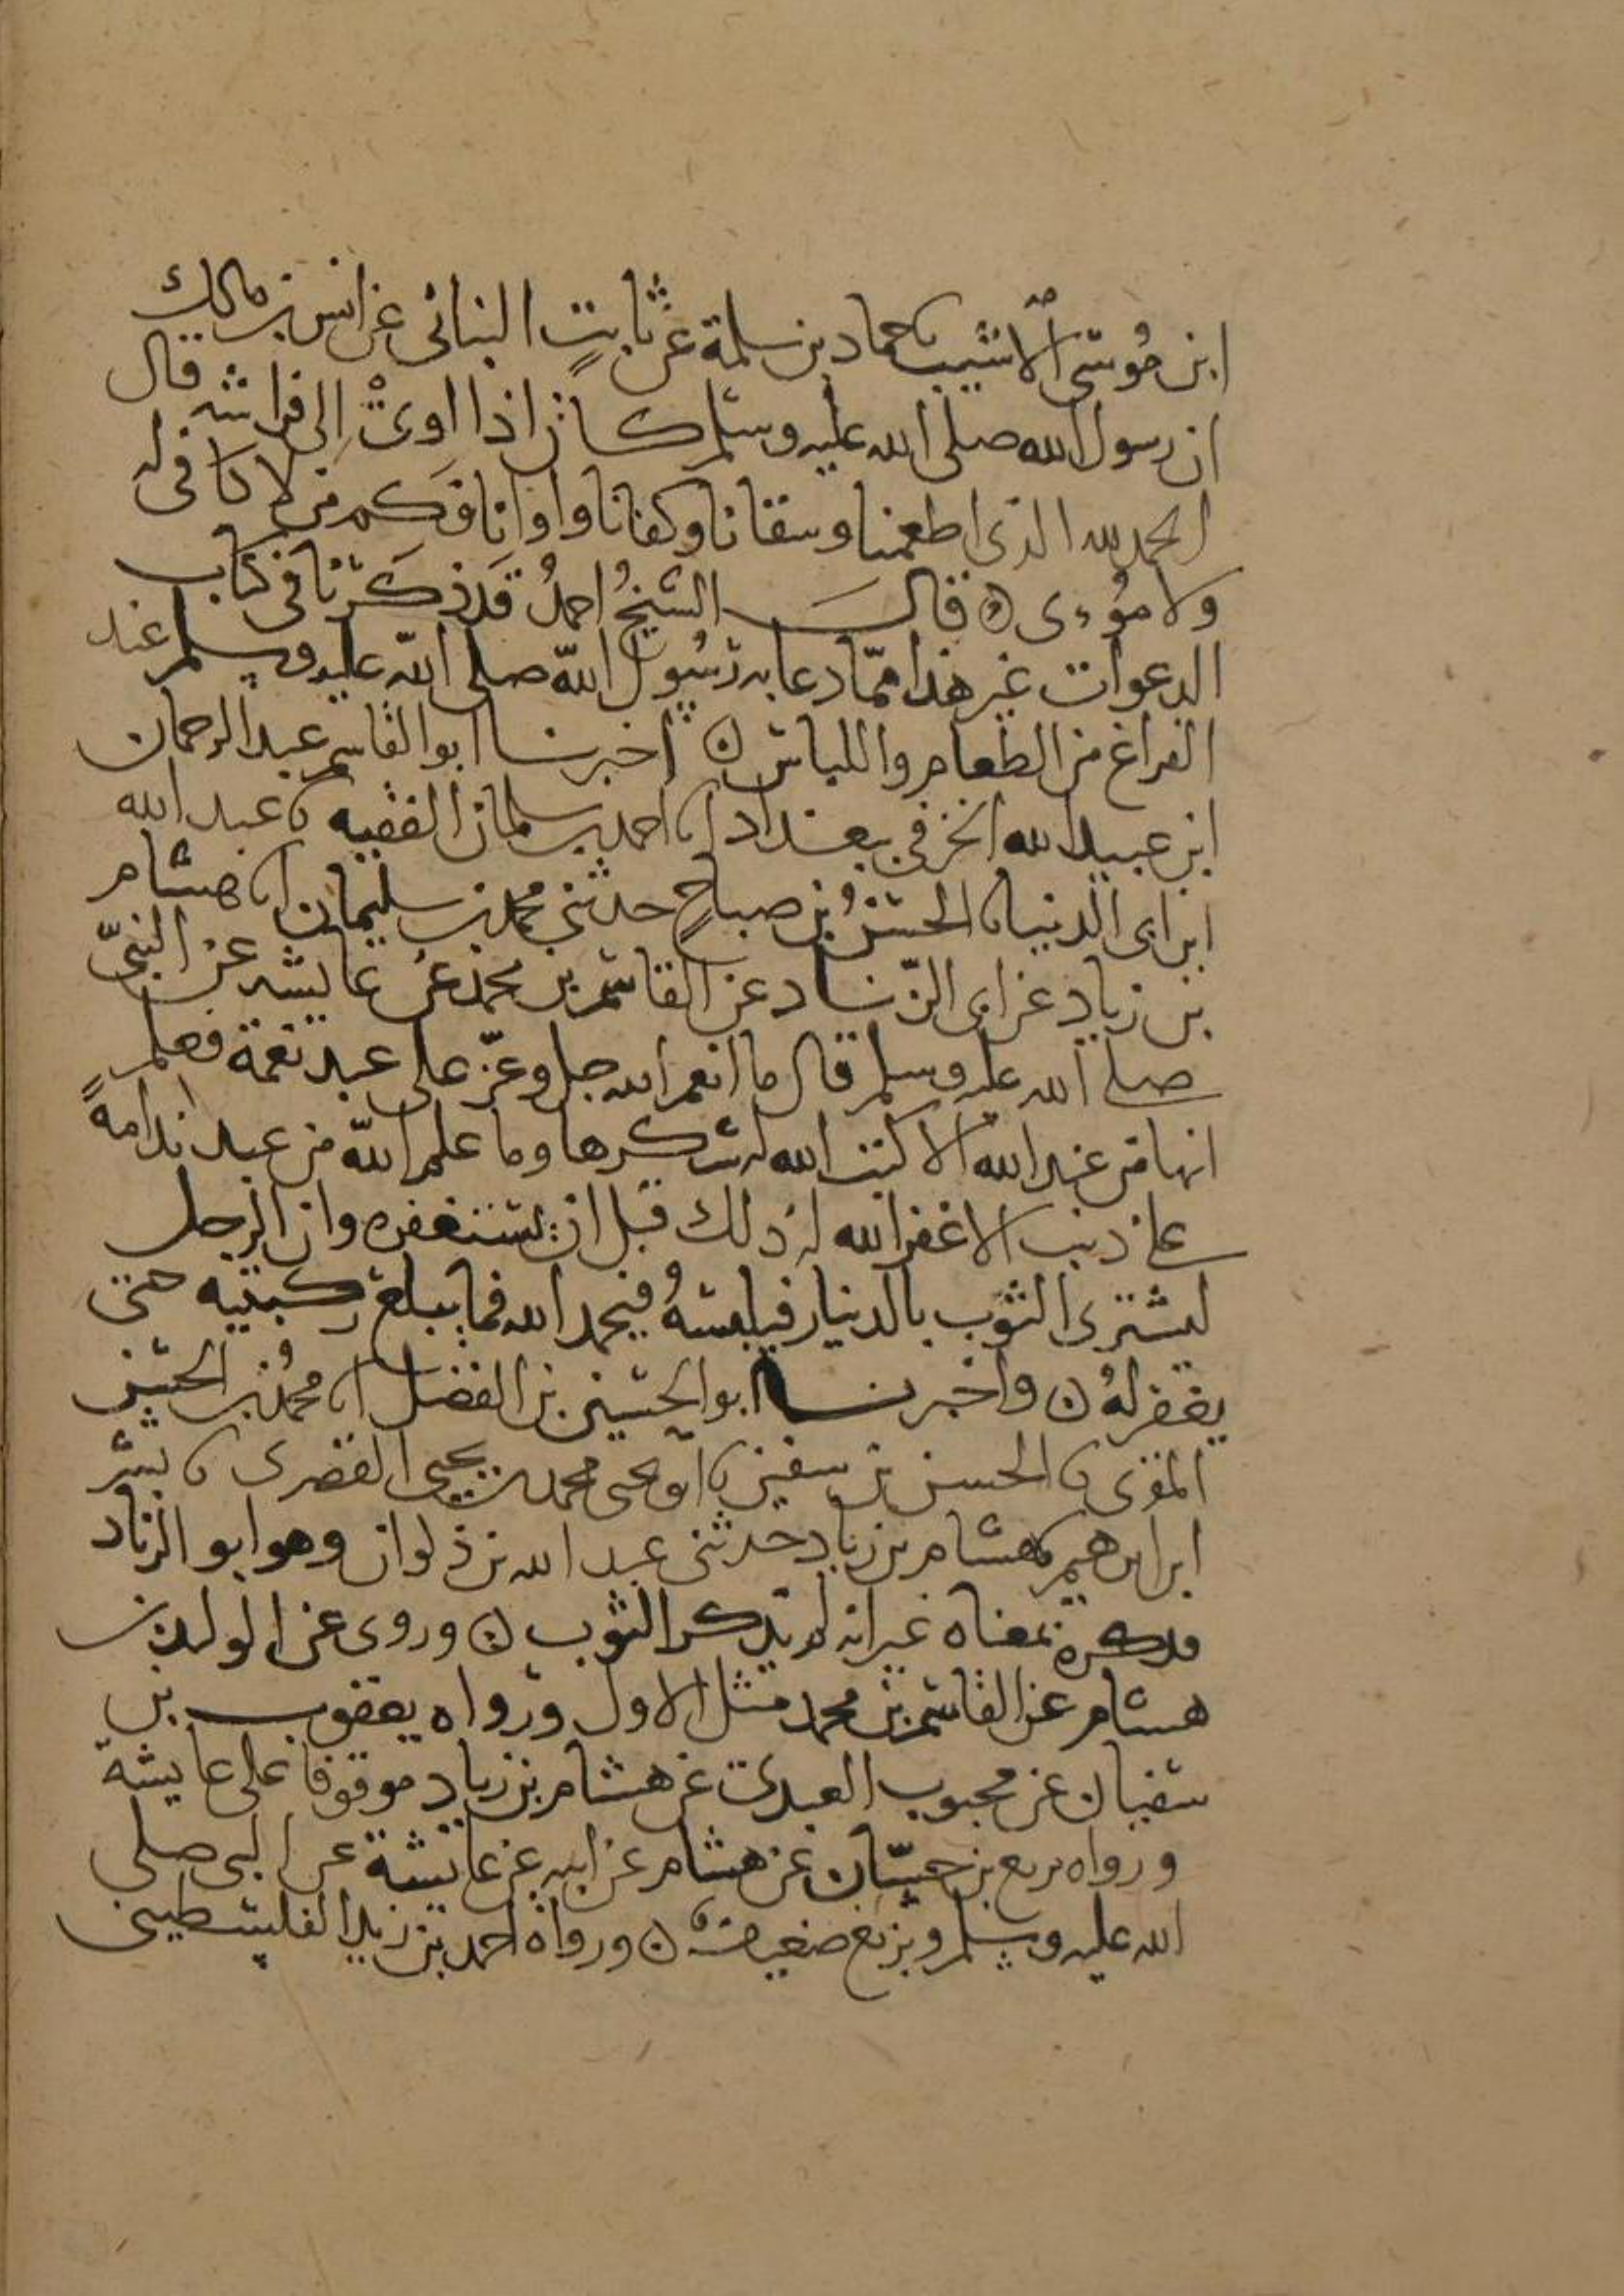 ابن موسى الاشيب نا حماد بن سلمة عن ثابت البنانى عن انس بن مالك
ان رسول الله صلى الله عليه وسلم كان اذا اوى إلى فراشه قال
الحمد لله الذى اطعمنا وسقانا وكفانا واوانا فكم من لا كافى له
ولا مؤوى ه قال الشيخ احمدُ قد ذكرنا فى كتاب
الدعوات غير هذا ممّا دعا به رسول الله صلى الله عليه وسلم عند
الفراغ من الطعام واللباس ن اخبرنا ابو القاسم عبد الرحمان
ابن عبيد الله الخرفى ببغداد انا احمد بن سلمان الفقيه نا عبد الله
ابن ابى الدنيا نا الحسنُ بن صباحٍ حدثنى محمد بن سليمان انا هشام
بن زياد عن ابى الزّناد عن القاسم بن محمد عن عايشه عن النبىّ
صلى الله عليه وسلم قال ما انعم الله جل وعزّ على عبد نعمة فعلم
انها من عند الله الا كتب الله له شكرها وما علم الله من عبد ندامةً
على ذنب الا غفر الله له ذلك قبل ان يستغفره وان الرجل
ليشترى الثوب بالدينار فيلبسهُ فيحمد الله فما يبلغ ركبتيه حتى
يغفر لهُ ن واخبرنا ابو الحسين بن الفضل انا محمدُ بن الحسن
المقرى نا الحسن بن سفين نا ابو يحيى محمد بن يحيى القصرى نا بشر
ابراهيم نا هشام بن زياد حدثنى عبد الله بن ذكوان وهو ابو الزناد
فذكره بمعناه غير انه لم يذكر الثوب ن وروى عن الوليد بن
هشام عن القاسم بن محمد مثل الاول ورواه يعقوب بن
سفيان عن محبوب العبدى عن هشام بن زياد موقوفا على عايشة
ورواه بزيع بن حسّان عن هشام عن ابيه عن عايشة عن النبى صلى
الله عليه وسلم وبزيع ضعيف ن ورواه احمد بن زيد الفلسطينى